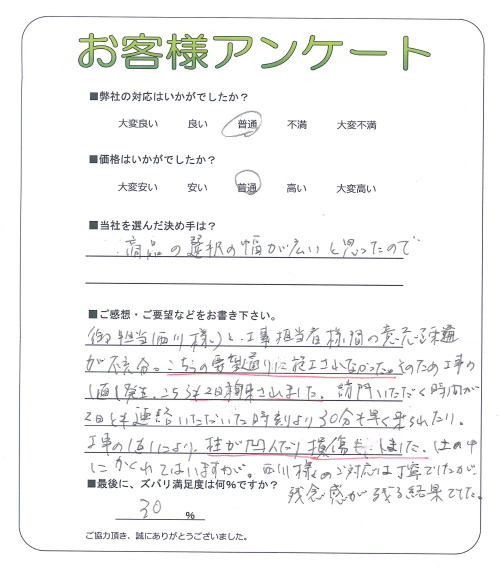 お客様アンケート
■弊社の対応はいかがでしたか？
大変良い 良い 普通 不満 大変不満
■価格はいかがでしたか？
大変安い 安い 普通 高い 大変高い
■当社を選んだ決め手は？
商品の選択の幅が広いと思ったので
■ご感想・ご要望などをお書き下さい。
御担当(西川様)と、工事担当者様間の意志疎通
が不充分。こちらの要望通りに施工されなかった。そのため工事の
直し発生、こちらも2日拘束されました。訪問いただく時間が
2日とも連絡いただいた時刻より30分も早く来られたり。
工事の直しにより、柱が凹んだり損傷も、しました。(土の中
にかくれてはいますが。西川様のご対応は丁寧でしたが
残念感が残る結果でした。
■最後に、ズバリ満足度は何%ですか？
30 %
ご協力頂き、誠にありがとうございました。